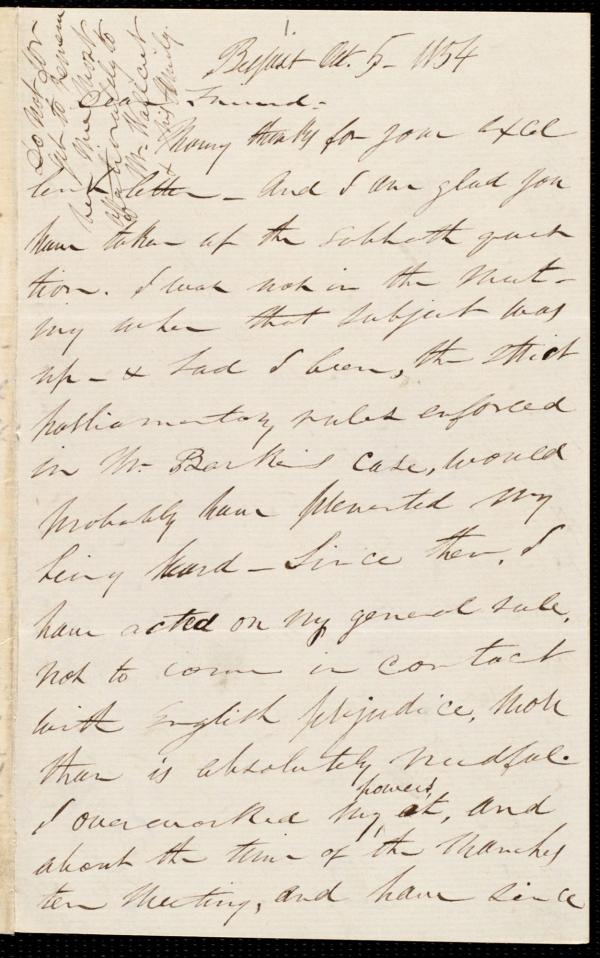 1.
Belfast Oct. 5 - 1854
Dear Friend -
Many thanks for your excel
lent letter - And I am glad you
have taken up the Sabbath ques
tion. I was not in the meet-
ing when that subject was
up - & had I been, the strict
parliamentary rules enforced
in Mr. Barker's case, would
probably have prevented my
being heard - Since then, I
have acted on my general rule,
not to come in contact
with English prejudice, more
than is absolutely needful.
I overworked my powers at, and
about the time of the Manches
ter Meeting, and have since
Do not for
get to remem
ber me most
affectionately to
Mr.
& his family.